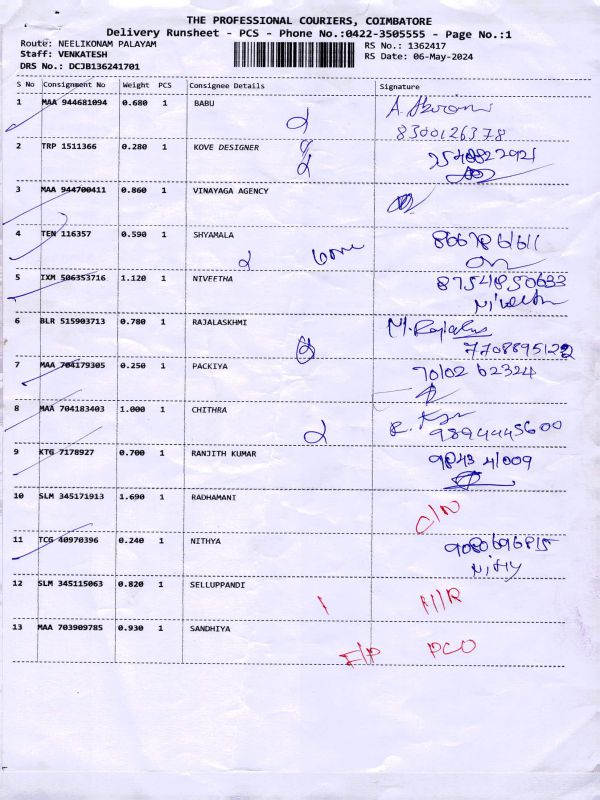 THE PROFESSIONAL COURIERS, COIMBATORE
Delivery Runsheet - PCS - Phone No.:0422-3505555 - Page No.:1
Route: NEELIKONAM PALAYAM
RS No.: 1362417
Staff: VENKATESH
RS Date: 06-May-2024
DRS No.: DCJB136241701
S No Consignment No Weight PCS Consignee Details Signature
1 MAA 944681094 0.680 1 BABU
8300126378
2 TRP 1511366 0.280 1 KOVE DESIGNER
3 MAA 944700411 0.860 1 VINAYAGA AGENCY
4 TEN 116357 0.590 1 SHYAMALA
5 IXM 506353716 1.120 1 NIVEETHA 8754850633
6 BLR 515903713 0.780 1 RAJALASKHMI
7708895122
7 MAA 704179305 0.250 1 PACKIYA 70102 62324
8 MAA 704183403 1.000 1 CHITHRA
9894445600
9 KTG 7178927 0.700 1 RANJITH KUMAR
10 SLM 345171913 1.690 1 RADHAMANI C/N
11 TCG 40970396 0.240 1 NITHYA 9080696815
12 SLM 345115063 0.820 1 SELLUPPANDI
13 MAA 703909785 0.930 1 SANDHIYA
F/P PCO